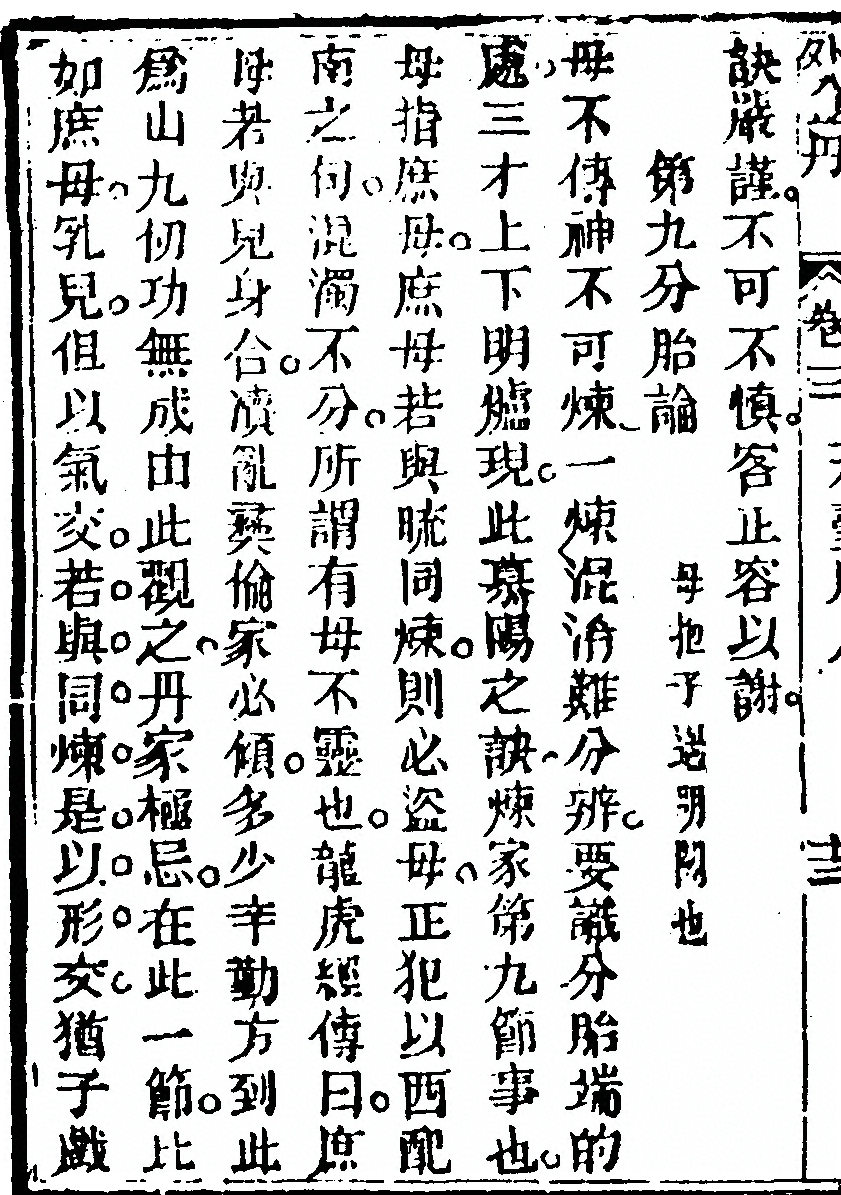 外金丹 卷三 十三
訣嚴謹不可不慎客止容以謝
第九分胎論 母抱子送明陽也
母不傳神不可煉一煉混淆難分辨要識分胎端的
處三才上下明爐現此慕陽之訣煉家第九節事也
母指庶母庶母若與硫同煉則必盜母正犯以西配
南之句混濁不分所謂有母不靈也龍虎經傳曰庶
母若與兒身合瀆亂彝倫家必傾多少辛勤方到此
為山九仞功無成由此觀之丹家極忌在此一節比
如庶母乳兒但以氣交若與同煉是以形交猶子戲